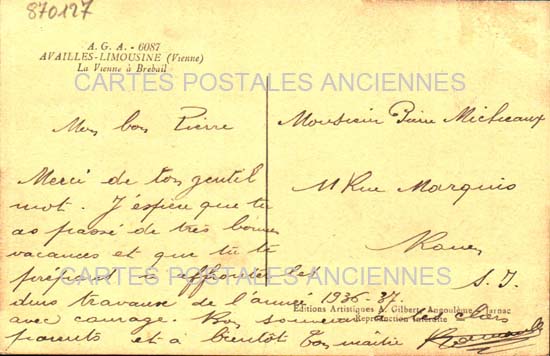 870127
A. G. A. - 6087
AVAILLES-LIMOUSINE (Vienne)
La Vienne à Brebail
CARTES POSTALES ANCIENNES
Mon bon Pierre
Merci de ton gentil
mot. J'espère que tu
as passé de très bonnes
vacances et que tu te
prépares à affronter les
durs travaux de l'année 1936-37.
avec courage. Bon souvenir à tes chers
parents et à bientôt Ton maître
Monsieur Pierre Micheaux
11 Rue Marquis
Rouen
S. I.
CARTES POSTALES ANCIENNES
Editions Artistiques A. Gilbert, Angoulême
Reproduction Interdite